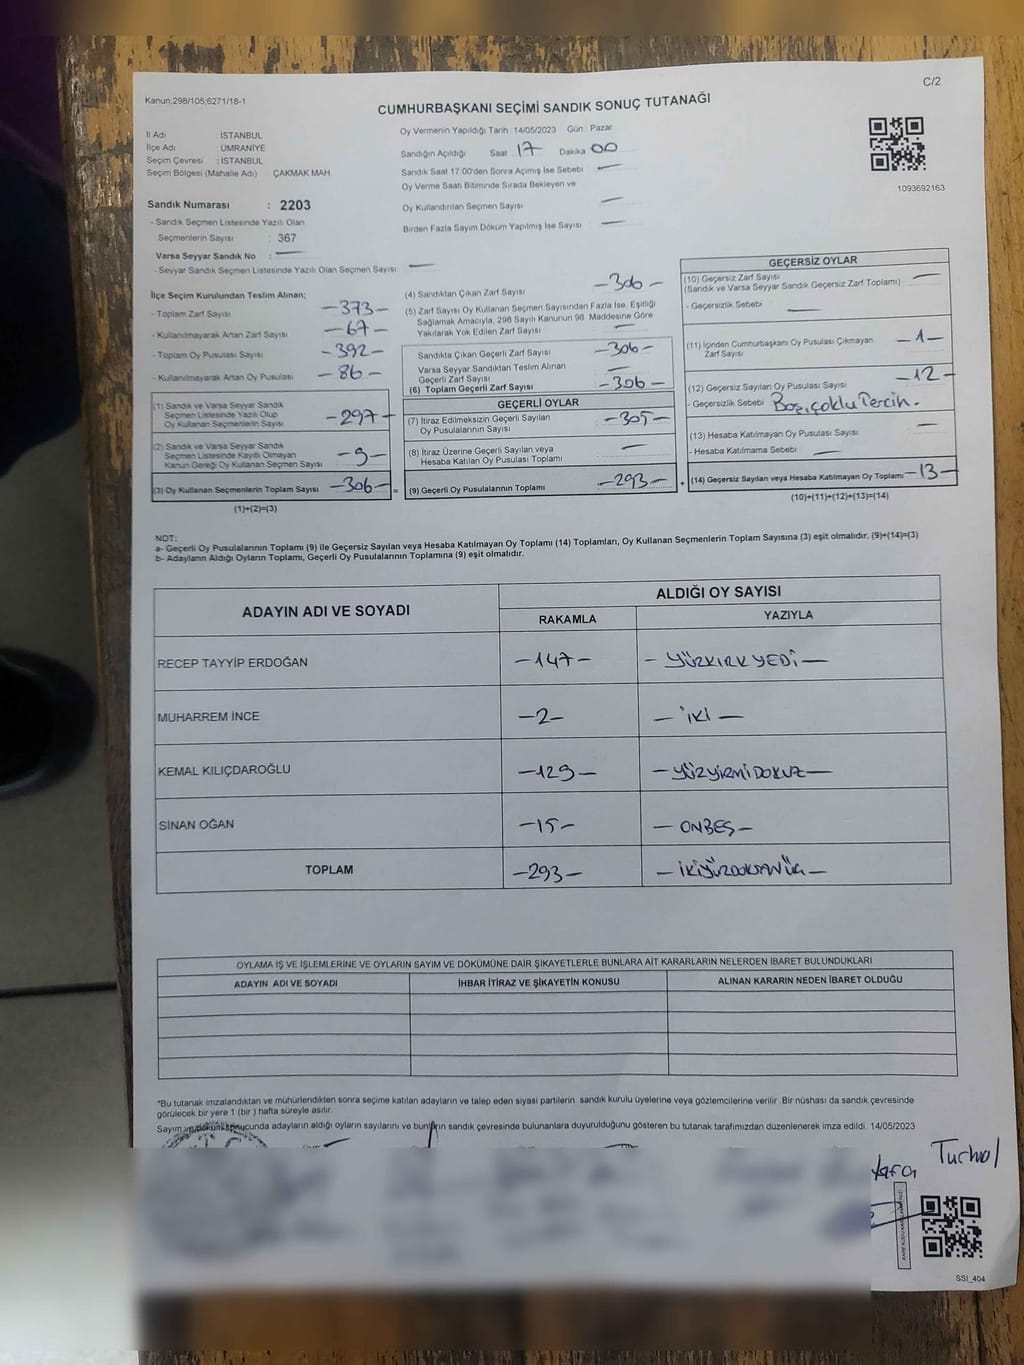 Kanun:298/105;6271/18-1
C/2
CUMHURBAŞKANI SEÇİMİ SANDIK SONUÇ TUTANAĞI
İl Adı : İSTANBUL
İlçe Adı : ÜMRANİYE
Seçim Çevresi : İSTANBUL
Seçim Bölgesi (Mahalle Adı) ÇAKMAK MAH.
Sandık Numarası : 2203
- Sandık Seçmen Listesinde Yazılı Olan
Seçmenlerin Sayısı : 367
Varsa Seyyar Sandık No : —
- Seyyar Sandık Seçmen Listesinde Yazılı Olan Seçmen Sayısı —
Oy Vermenin Yapıldığı Tarih 14/05/2023 Gün : Pazar
Sandığın Açıldığı Saat 17 Dakika 00
Sandık Saat 17:00'den Sonra Açımış İse Sebebi —
Oy Verme Saati Bitiminde Sırada Bekleyen ve
Oy Kullandırılan Seçmen Sayısı —
Birden Fazla Sayım Döküm Yapılmış İse Sayısı —
1093692163
İlçe Seçim Kurulundan Teslim Alınan;
- Toplam Zarf Sayısı -373-
- Kullanılmayarak Artan Zarf Sayısı -67-
- Toplam Oy Pusulası Sayısı -392-
- Kullanılmayarak Artan Oy Pusulası -86-
(1) Sandık ve Varsa Seyyar Sandık
Seçmen Listesinde Yazılı Olup
Oy Kullanan Seçmenlerin Sayısı -297-
(2) Sandık ve Varsa Seyyar Sandık
Seçmen Listesinde Kayıtlı Olmayan
Kanun Gereği Oy Kullanan Seçmen Sayısı -9-
(3) Oy Kullanan Seçmenlerin Toplam Sayısı -306- =
(1)+(2)=(3)
(4) Sandıktan Çıkan Zarf Sayısı -306-
(5) Zarf Sayısı Oy Kullanan Seçmen Sayısından Fazla İse, Eşitliği
Sağlamak Amacıyla, 298 Sayılı Kanunun 98. Maddesine Göre
Yakılarak Yok Edilen Zarf Sayısı —
Sandıkta Çıkan Geçerli Zarf Sayısı -306-
Varsa Seyyar Sandıktan Teslim Alınan
Geçerli Zarf Sayısı —
(6) Toplam Geçerli Zarf Sayısı -306-
GEÇERLİ OYLAR
(7) İtiraz Edilmeksizin Geçerli Sayılan
Oy Pusulalarının Sayısı -305-
(8) İtiraz Üzerine Geçerli Sayılan veya
Hesaba Katılan Oy Pusulası Toplamı —
(9) Geçerli Oy Pusulalarının Toplamı -293- +
GEÇERSİZ OYLAR
(10) Geçersiz Zarf Sayısı
(Sandık ve Varsa Seyyar Sandık Geçersiz Zarf Toplamı) —
- Geçersizlik Sebebi —
(11) İçinden Cumhurbaşkanı Oy Pusulası Çıkmayan
Zarf Sayısı -1-
(12) Geçersiz Sayılan Oy Pusulası Sayısı -12-
- Geçersizlik Sebebi Boş, çoklu Tercih.
(13) Hesaba Katılmayan Oy Pusulası Sayısı —
- Hesaba Katılmama Sebebi —
(14) Geçersiz Sayılan veya Hesaba Katılmayan Oy Toplamı -13-
(10)+(11)+(12)+(13)=(14)
NOT:
a- Geçerli Oy Pusulalarının Toplamı (9) ile Geçersiz Sayılan veya Hesaba Katılmayan Oy Toplamı (14) Toplamları, Oy Kullanan Seçmenlerin Toplam Sayısına (3) eşit olmalıdır. (9)+(14)=(3)
b- Adayların Aldığı Oyların Toplamı, Geçerli Oy Pusulalarının Toplamına (9) eşit olmalıdır.
ADAYIN ADI VE SOYADI ALDIĞI OY SAYISI
RAKAMLA YAZIYLA
RECEP TAYYİP ERDOĞAN -147- - YÜZKIRKYEDİ -
MUHARREM İNCE -2- - İKİ -
KEMAL KILIÇDAROĞLU -129- - YÜZYİRMİDOKUZ -
SİNAN OĞAN -15- - ONBEŞ -
TOPLAM -293- - İKİYÜZDOKSANÜÇ -
OYLAMA İŞ VE İŞLEMLERİNE VE OYLARIN SAYIM VE DÖKÜMÜNE DAİR ŞİKAYETLERLE BUNLARA AİT KARARLARIN NELERDEN İBARET BULUNDUKLARI
ADAYIN ADI VE SOYADI İHBAR İTİRAZ VE ŞİKAYETİN KONUSU ALINAN KARARIN NEDEN İBARET OLDUĞU
*Bu tutanak imzalandıktan ve mühürlendikten sonra seçime katılan adayların ve talep eden siyasi partilerin sandık kurulu üyelerine veya gözlemcilerine verilir. Bir nüshası da sandık çevresinde
görülecek bir yere 1 (bir) hafta süreyle asılır.
Sayım ve döküm sonucunda adayların aldığı oyların sayılarını ve bunların sandık çevresinde bulunanlara duyurulduğunu gösteren bu tutanak tarafımızdan düzenlenerek imza edildi. 14/05/2023
Turhal
SSI_404